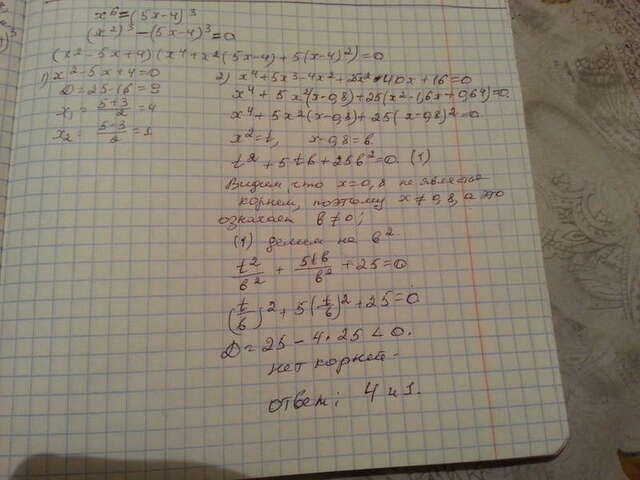 x⁶ = (5x-4)³
(x²)³-(5x-4)³=0
(x²-5x+4)(x⁴+x²(5x-4)+5(x-4)²)=0
1) x²-5x+4=0
D=25-16=9
x₁ = (5+3)/2 = 4
x₂ = (5-3)/2 = 1
2) x⁴+5x³-4x²+25x²-40x+16=0
x⁴+5x²(x-0,8)+25(x²-1,6x+0,64)=0
x⁴+5x²(x-0,8)+25(x-0,8)²=0
x²=t, x-0,8=в.
t²+5tв+25в²=0. (1)
Видим что x=0,8 не является
корнем, поэтому x≠0,8, а это
означает в≠0;
(1) делим на в²
t²/в² + 5tв/в² +25=0
(t/в)²+5(t/в)²+25=0
D=25-4·25<0.
нет корней-
ответ; 4 и 1.